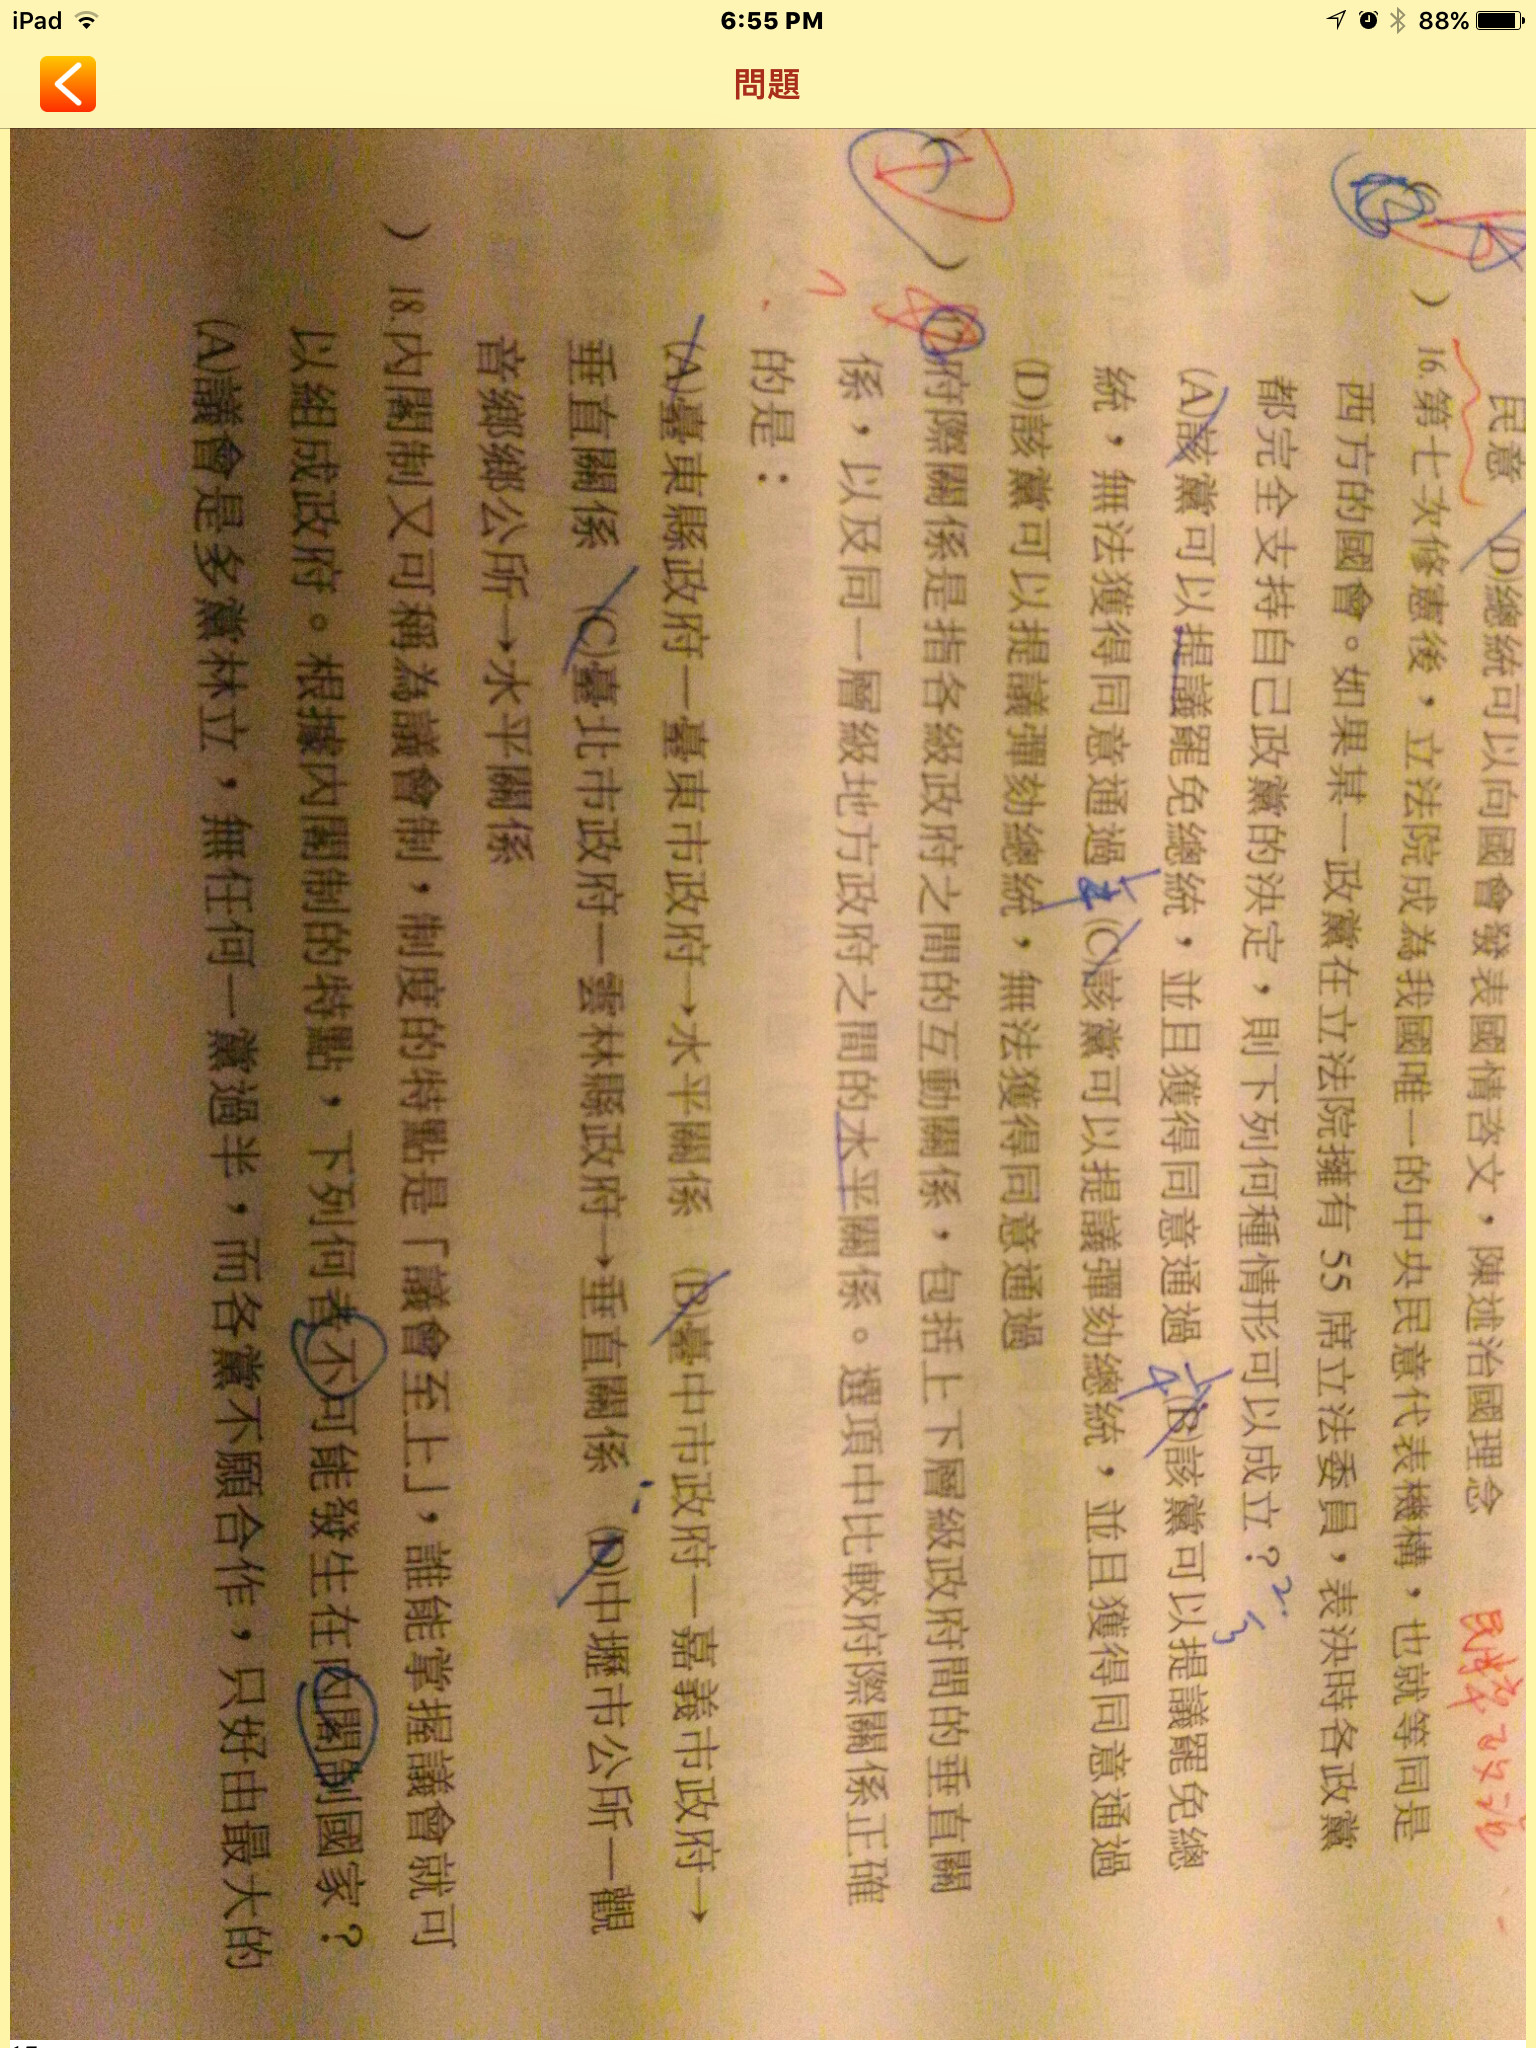 iPad
6:55 PM
88%
問題
民意 (D)總統可以向國會發表國情咨文，陳述治國理念
) 16.第七次修憲後，立法院成為我國唯一的中央民意代表機構，也就等同是
西方的國會。如果某一政黨在立法院擁有 55 席立法委員，表決時各政黨
都完全支持自己政黨的決定，則下列何種情形可以成立？
(A)該黨可以提議罷免總統，並且獲得同意通過 (B)該黨可以提議罷免總
統，無法獲得同意通過 (C)該黨可以提議彈劾總統，並且獲得同意通過
(D)該黨可以提議彈劾總統，無法獲得同意通過
) 府際關係是指各級政府之間的互動關係，包括上下層級政府間的垂直關
係，以及同一層級地方政府之間的水平關係。選項中比較府際關係正確
的是：
(A)臺東縣政府—臺東市政府→水平關係 (B)臺中市政府—嘉義市政府→
垂直關係 (C)臺北市政府—雲林縣政府→垂直關係 (D)中壢市公所—觀
音鄉鄉公所→水平關係
) 18.內閣制又可稱為議會制，制度的特點是「議會至上」，誰能掌握議會就可
以組成政府。根據內閣制的特點，下列何者不可能發生在內閣制國家？
(A)議會是多黨林立，無任何一黨過半，而各黨不願合作，只好由最大的